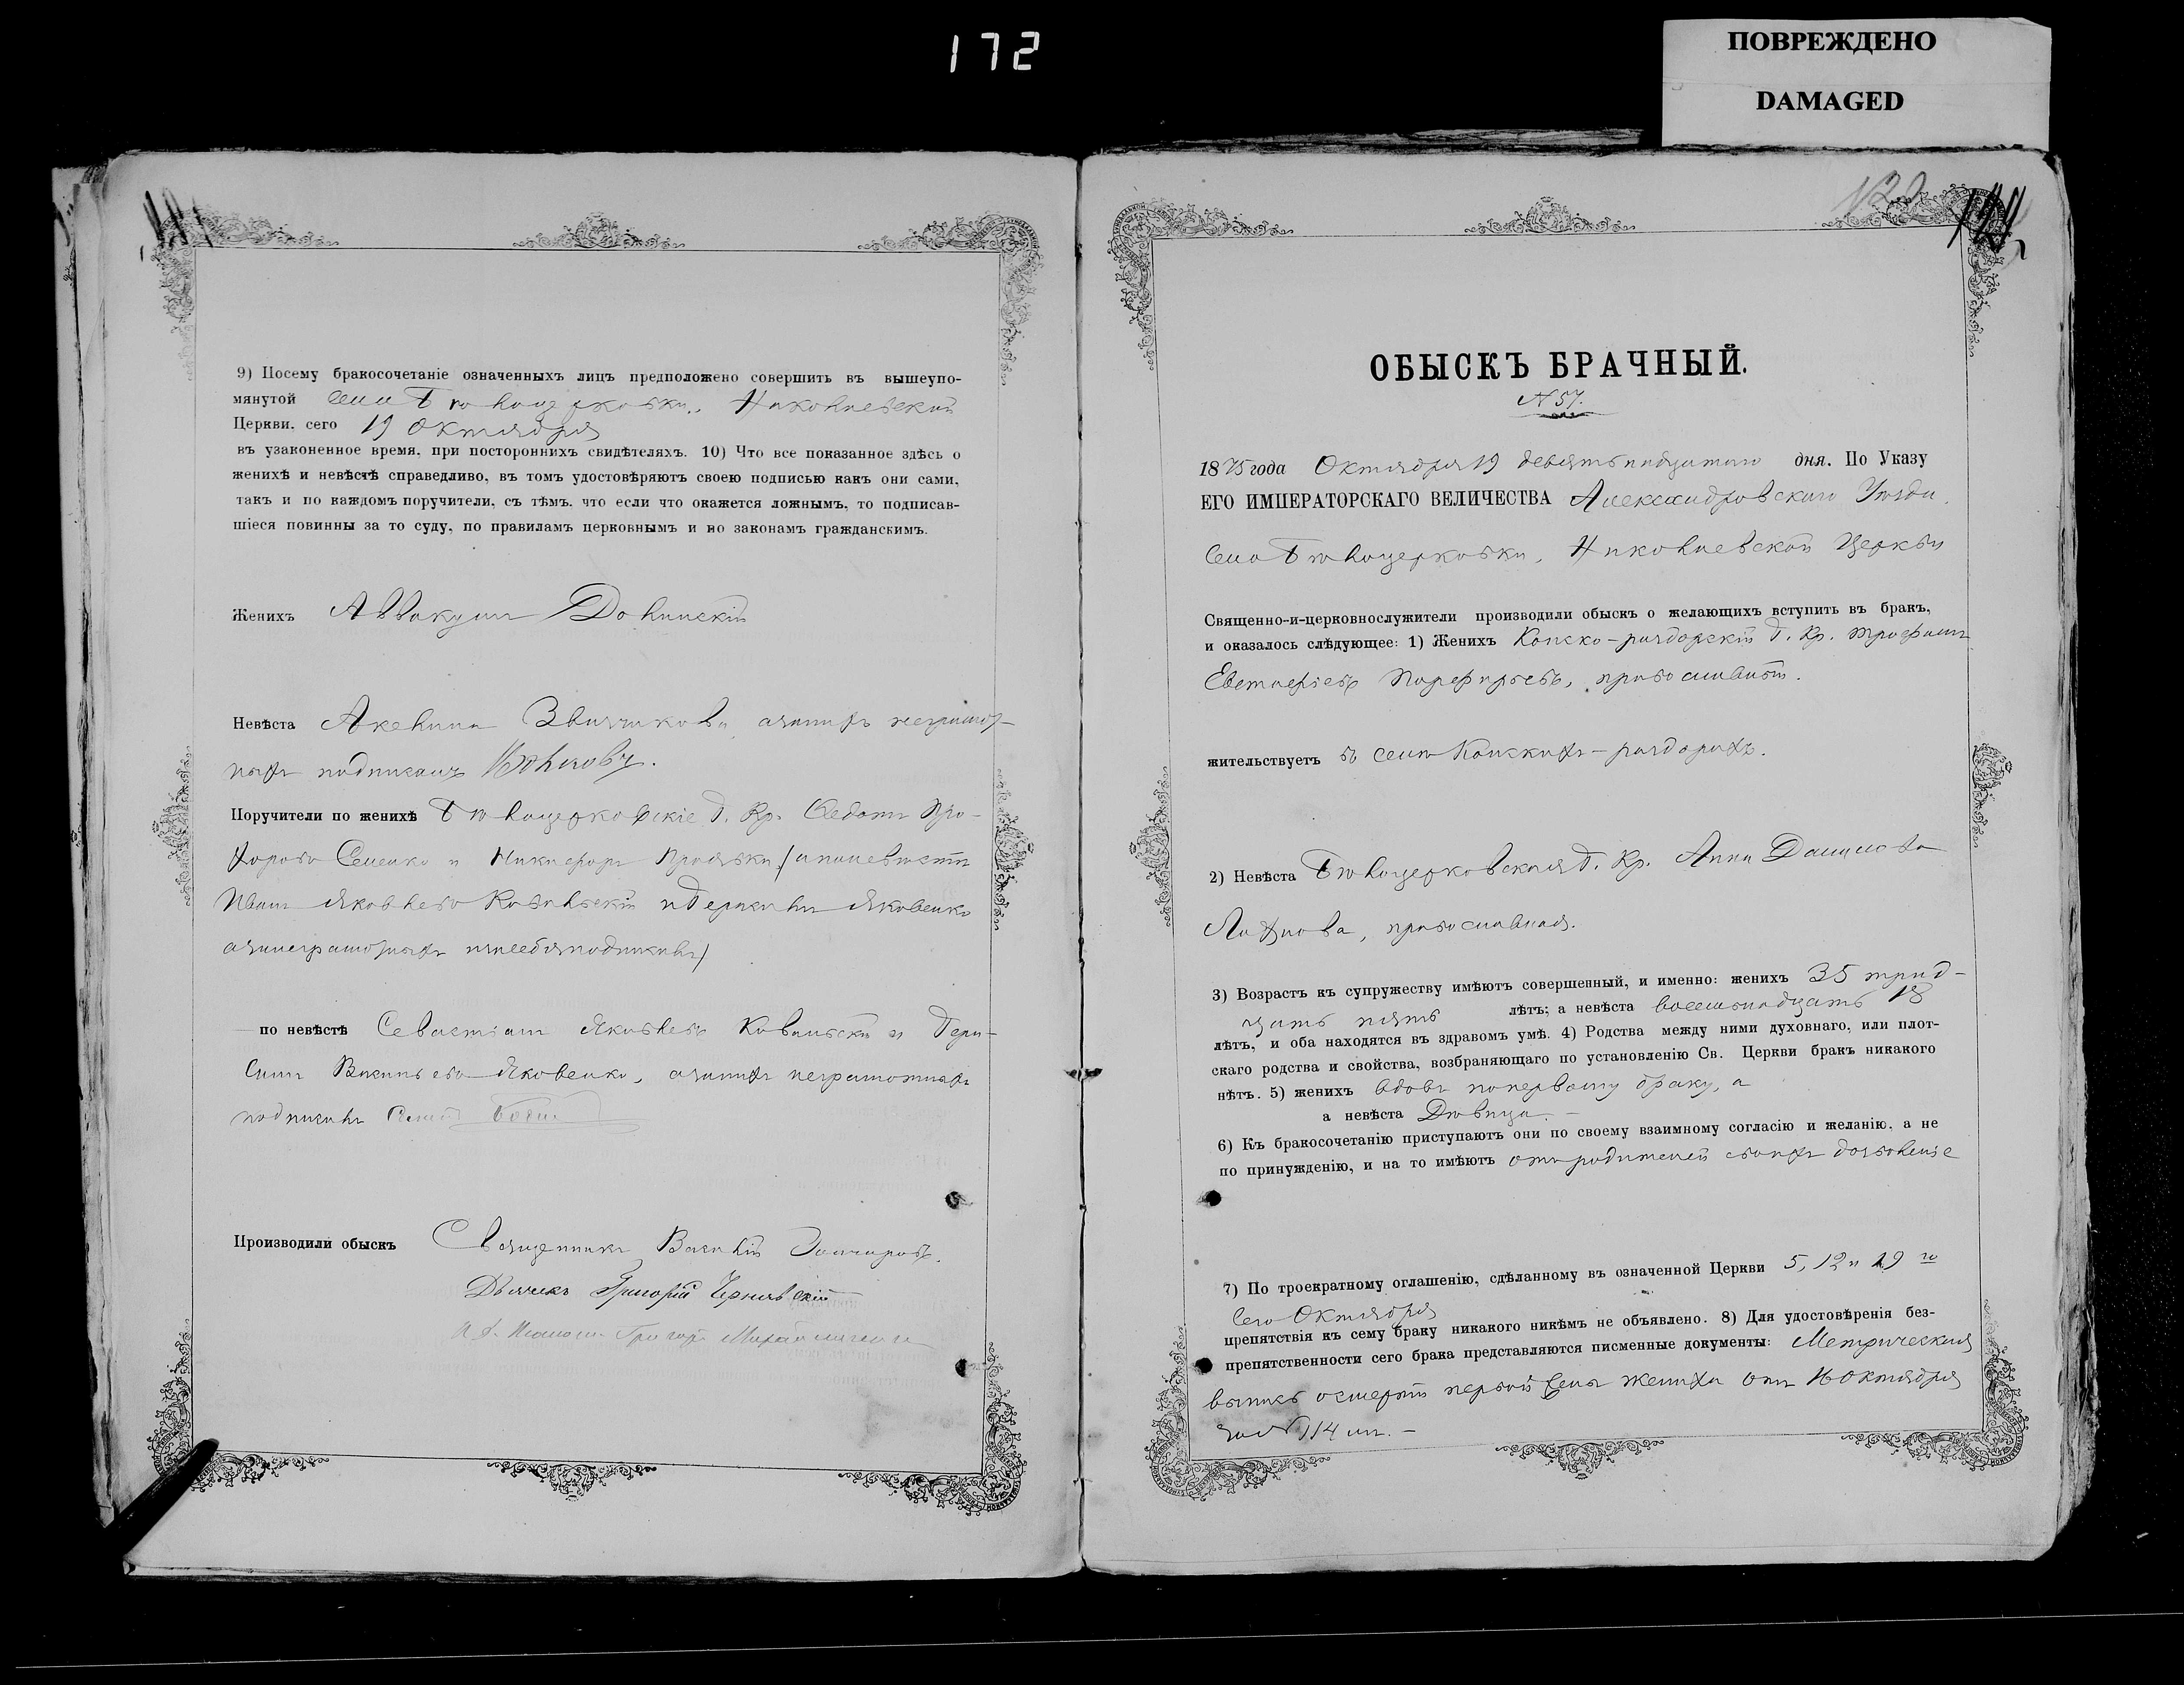 172
ПОВРЕЖДЕНО
DAMAGED
9) Посему бракосочетаніе означенныхъ лицъ предположено совершить въ вышеупо-
мянутой села Бѣлоцерковки, Николаевской
Церкви, сего 19 Октября
въ узаконенное время, при постороннихъ свидѣтеляхъ. 10) Что все показанное здѣсь о
женихѣ и невѣстѣ справедливо, въ томъ удостовѣряютъ своею подписью какъ они сами,
такъ и по каждомъ поручители, съ тѣмъ, что если что окажется ложнымъ, то подписав-
шіеся повинны за то суду, по правиламъ церковнымъ и по законамъ гражданскимъ.
Женихъ Аввакумъ Долинскій
Невѣста Акелина а за нихъ неграмот-
ныхъ подписалъ
Поручители по женихѣ Бѣлоцерковскіе Г. Кр. Федотъ Про-
хоровъ Семенко и Никифоръ
Иванъ Яковлевъ Яковенко
а за неграмотныхъ и за себя подписалъ)
по невѣстѣ Севастіанъ Яковлевъ и Гера-
симъ Васильевъ Яковенко, а за нихъ неграмотныхъ
подписалъ
Производили обыскъ Священникъ Василій Гончаровъ.
Дьячекъ Григорій Чернявскій
Григорій
120
ОБЫСКЪ БРАЧНЫЙ.
№ 57.
1875 года Октября 19 девятнадцатаго дня. По Указу
ЕГО ИМПЕРАТОРСКАГО ВЕЛИЧЕСТВА Александровскаго Уѣзда
Села Бѣлоцерковки, Николаевской Церкви
Священно-и-церковнослужители производили обыскъ о желающихъ вступить въ бракъ,
и оказалось слѣдующее: 1) Женихъ Конско-раздорскій Г. Кр. Трофимъ
Евстафіевъ Порфирьевъ, православный.
жительствуетъ въ селѣ Конскихъ-раздорахъ.
2) Невѣста Бѣлоцерковская Г. Кр. Анна Данилова
Лахнова, православная.
3) Возрастъ къ супружеству имѣютъ совершенный, и именно: женихъ 35 трид-
цать пять лѣтъ; а невѣста восемьнадцать 18
лѣтъ, и оба находятся въ здравомъ умѣ. 4) Родства между ними духовнаго, или плот-
скаго родства и свойства, возбраняющаго по установленію Св. Церкви бракъ никакого
нѣтъ. 5) женихъ вдовъ по первому браку, а
а невѣста Дѣвица. –
6) Къ бракосочетанію приступаютъ они по своему взаимному согласію и желанію, а не
по принужденію, и на то имѣютъ отъ родителей своихъ дозволеніе
7) По троекратному оглашенію, сдѣланному въ означенной Церкви 5, 12 и 19 го
сего Октября
препятствія къ сему браку никакого никѣмъ не объявлено. 8) Для удостовѣренія без-
препятственности сего брака представляются писменные документы: Метрическая
выпись о смерти первой жены жениха отъ 16 Октября
за № 114 мъ. –